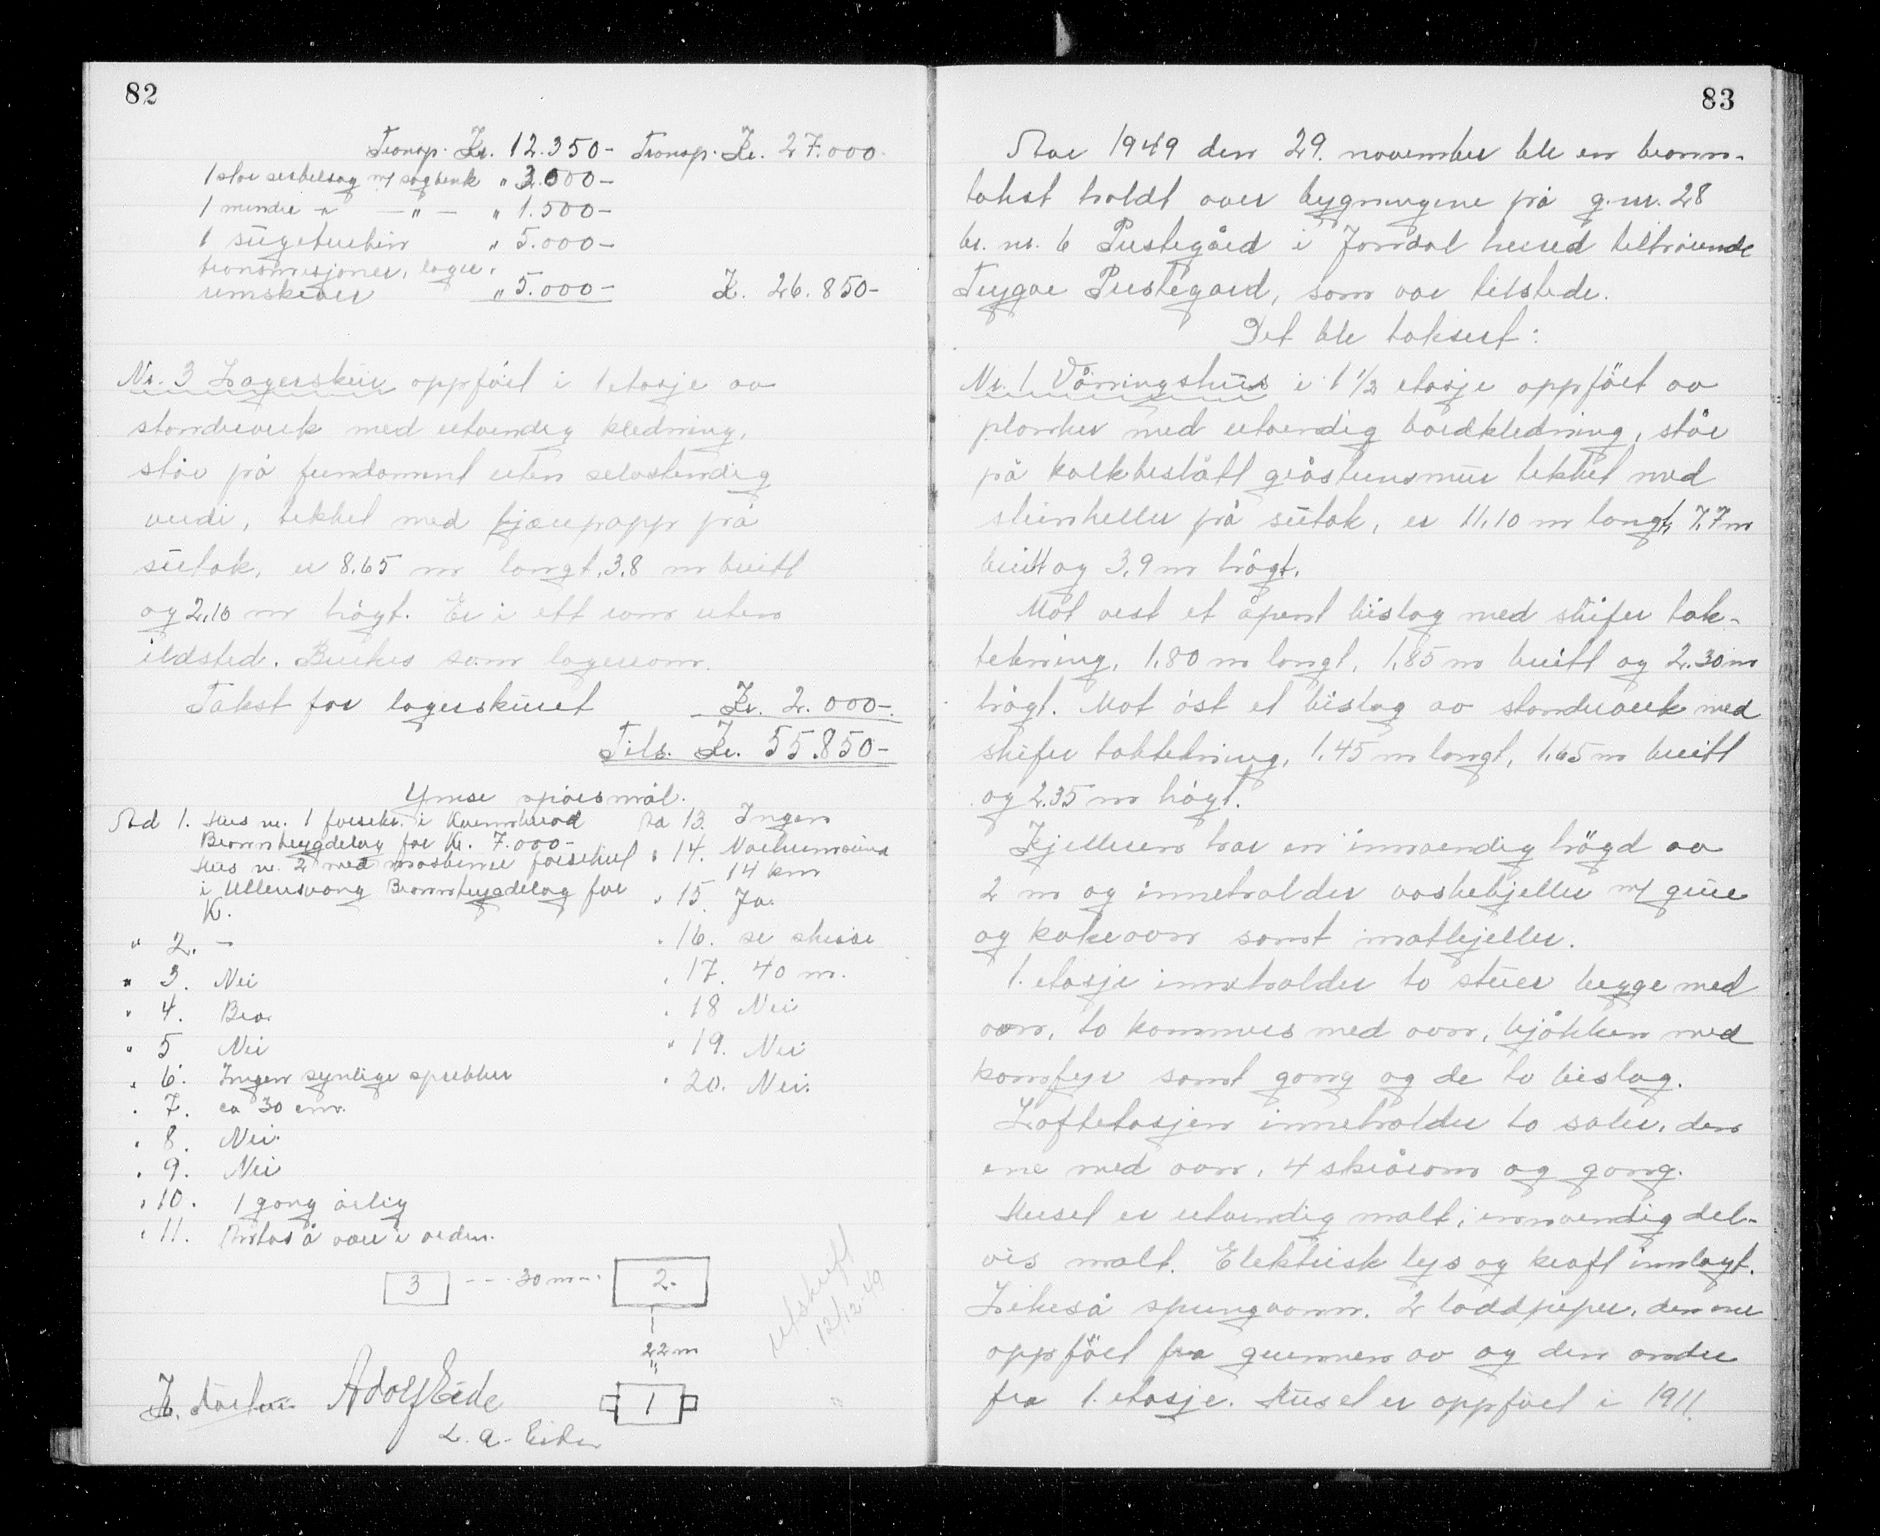 82
Transp. Kr. 12.350- Transp. Kr. 27.000.
1 stor sirkelsag m/ sagbenk " 3.000-
1 mindre -"- -"- " 1.500-
1 sugeturbin " 5.000-
transmisjoner, lager,
remskiver " 5.000- K. 26.850-
Nr. 3 Lagerskur oppført i 1 etasje av
standverk med utvendig kledning,
står på fundament uten selvstendig
verdi, tekket med tjærepapp på
sutak, er 8.65 m langt, 3,8 m breitt
og 2,10 m høgt. Er i ett rom uten
ildsted. Brukes som lagerrom.
Takst for lagerskuret Kr. 2.000-.
Tils. Kr. 55.850-
Ymse spørsmål.
Ad 1. Hus nr. 1 forsikr. i Kvamherad
Brannbygdelag for Kr. 7.000-
Hus nr. 2 med maskiner forsikret
i Ullensvang Brannbygdelag for
K.
" 2. -
" 3. Nei
" 4. Bra
" 5 Nei
" 6. Ingen synlige sprekker
" 7. ca 30 cm.
" 8. Nei.
" 9. Nei
" 10. 1 gang årlig
" 11. Antas å være i orden.
Ad 13. Ingen
" 14.
14 km
" 15. Ja.
" 16. se skisse
" 17. 40 m.
" 18 Nei
" 19. Nei
" 20. Nei.
3 --- 30 m --- 2.
22 m
1
utskrift
12/12-49
Adolf Eide
83
Aar 1949 den 29. november ble en brann-
takst holdt over bygningene på g.nr. 28
br. nr. 6 Prestegård i Jondal herred tilhørende
Trygve Prestegard, som var tilstede.
Det ble taksert:
Nr. 1 Våningshus i 1 1/2 etasje oppført av
planker med utvendig bordkledning, står
på kalkbeslått gråsteinsmur tekket med
steinheller på sutak, er 11,10 m langt, 7,7 m
breitt og 3,9 m høgt.
Mot vest et åpent bislag med skifer tak-
tekning, 1,80 m langt, 1,85 m breitt og 2.30 m
høgt. Mot øst et bislag av standverk med
skifer taktekning, 1,45 m langt, 1,65 m breitt
og 2.35 m høgt.
Kjelleren har en innvendig høgd av
2 m og inneholder vaskekjeller m/ grue
og kokeovn samt matkjeller.
1. etasje inneholder to stuer begge med
ovn, to kammers med ovn, kjøkken med
komfyr samt gang og de to bislag.
Loftetasjen inneholder to saler, den
ene med ovn, 4 skrårom og gang.
Huset er utvendig malt, innvendig del-
vis malt. Elektrisk lys og kraft innlagt.
Likeså springvann. 2 loddpiper, den ene
oppført fra grunnen av og den andre
fra 1. etasje. Huset er oppført i 1911.